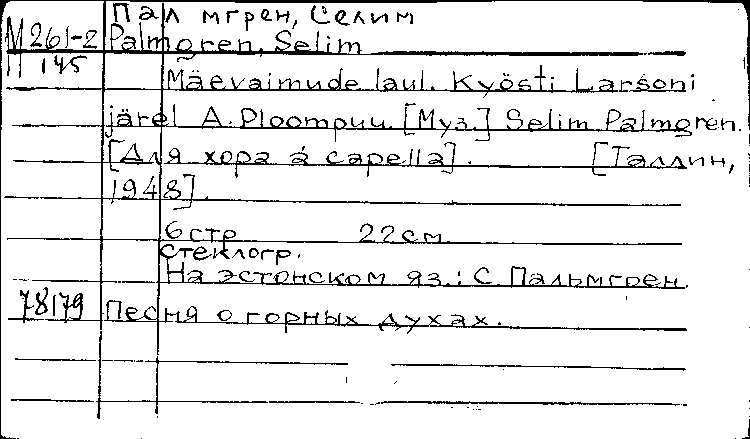 Палмгрен, Селим
М 261-2 Palmgren, Selim
П 145
Mäevaimude laul. Kyösti Larsoni
järel A. Ploompuu. [Муз.] Selim Palmgren.
[Для хора á capella]. [Таллин,
1948].
6 стр 22 см.
стеклогр.
На эстонском яз.: С. Пальмгрен.
78179 Песня о горных духах.